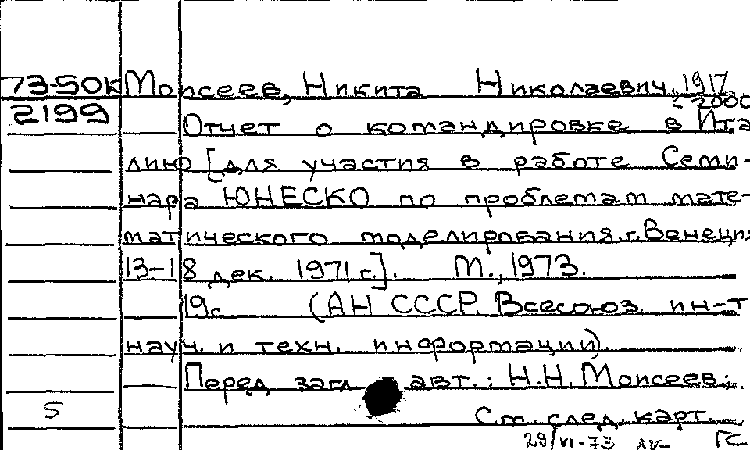 73-50к Моисеев, Никита Николаевич, 1917
-2000
2199 Отчет о командировке в Ита
лию [для участия в работе Семи-
нара ЮНЕСКО по проблемам мате-
матического моделирования. г. Венеция
13-18 дек. 1971 г.]. М., 1973.
19с (АН СССР. Всесоюз. ин-т
науч. и техн. информации).
Перед загл авт.: Н.Н. Моисеев.
5 См. след. карт.
29/VI-73 ГС